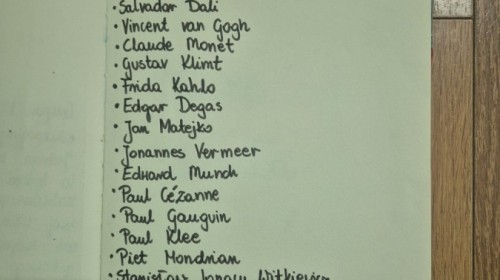 • Salvador Dali
• Vincent van Gogh
• Claude Monet
• Gustav Klimt
• Frida Kahlo
• Edgar Degas
• Jan Matejko
• Jonannes Vermeer
• Edward Munch
• Paul Cézanne
• Paul Gauguin
• Paul Klee
• Piet Mondrian
• Stanisław Ignacy Witkiewicz